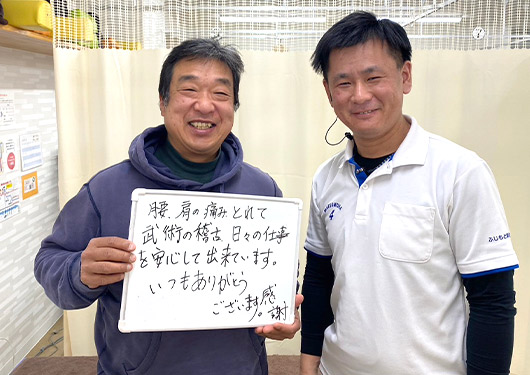 腰、肩の痛みとれて
武術の稽古、日々の仕事
を安心して出来ています。
いつもありがとう
ございます。感謝
4